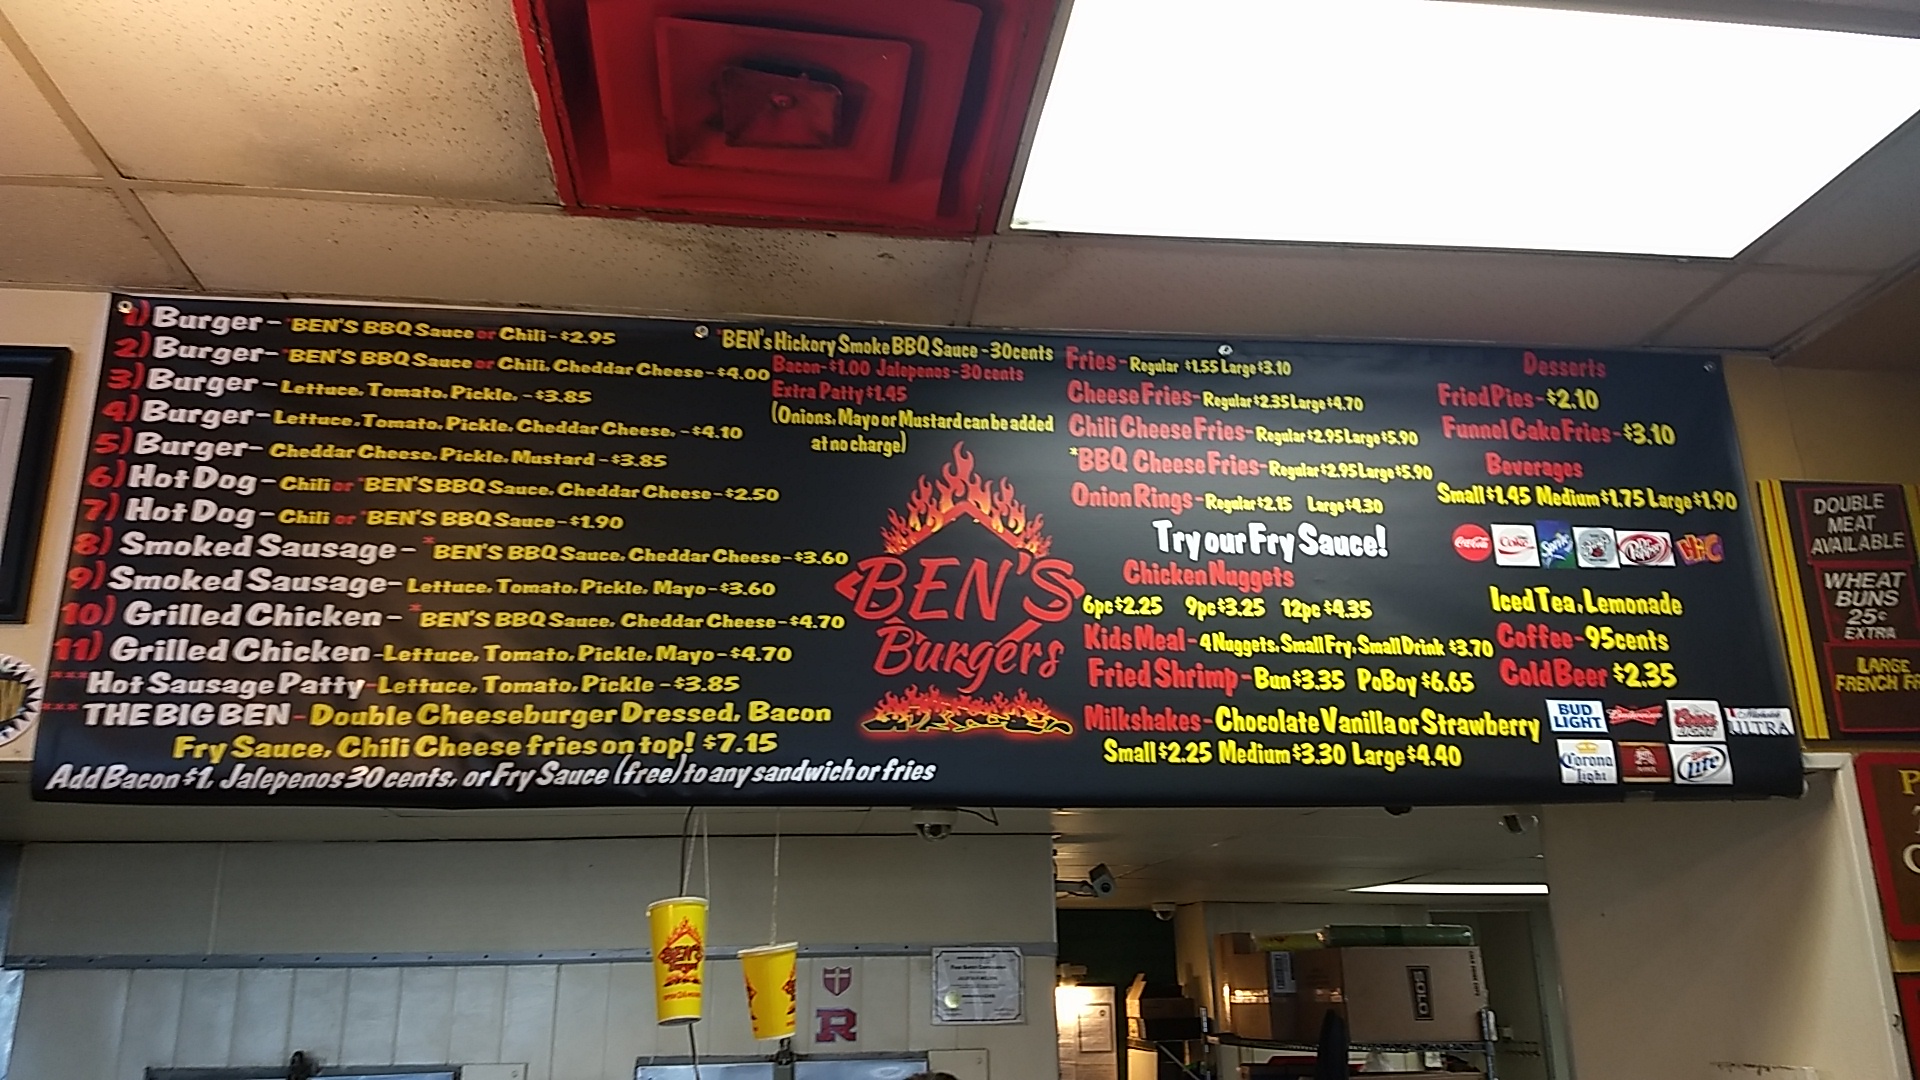 1) Burger - *BEN'S BBQ Sauce or Chili - $2.95
2) Burger - *BEN'S BBQ Sauce or Chili, Cheddar Cheese - $4.00
3) Burger - Lettuce, Tomato, Pickle, - $3.85
4) Burger - Lettuce, Tomato, Pickle, Cheddar Cheese, - $4.10
5) Burger - Cheddar Cheese, Pickle, Mustard - $3.85
6) Hot Dog - Chili or *BEN'S BBQ Sauce, Cheddar Cheese - $2.50
7) Hot Dog - Chili or *BEN'S BBQ Sauce - $1.90
8) Smoked Sausage - *BEN'S BBQ Sauce, Cheddar Cheese - $3.60
9) Smoked Sausage - Lettuce, Tomato, Pickle, Mayo - $3.60
10) Grilled Chicken - *BEN'S BBQ Sauce, Cheddar Cheese - $4.70
11) Grilled Chicken - Lettuce, Tomato, Pickle, Mayo - $4.70
***Hot Sausage Patty - Lettuce, Tomato, Pickle - $3.85
***THE BIG BEN - Double Cheeseburger Dressed, Bacon
Fry Sauce, Chili Cheese fries on top! $7.15
Add Bacon $1, Jalepenos 30 cents, or Fry Sauce (free) to any sandwich or fries
*BEN's Hickory Smoke BBQ Sauce - 30cents
Bacon - $1.00 Jalepenos - 30 cents
Extra Patty $1.45
(Onions, Mayo or Mustard can be added
at no charge)
BEN'S
Burgers
Fries - Regular $1.55 Large $3.10
Cheese Fries - Regular $2.35 Large $4.70
Chili Cheese Fries - Regular $2.95 Large $5.90
*BBQ Cheese Fries - Regular $2.95 Large $5.90
Onion Rings - Regular $2.15 Large $4.30
Try our Fry Sauce!
Chicken Nuggets
6pc $2.25 9pc $3.25 12pc $4.35
Kids Meal - 4 Nuggets, Small Fry, Small Drink $3.70
Fried Shrimp - Bun $3.35 PoBoy $6.65
Milkshakes - Chocolate Vanilla or Strawberry
Small $2.25 Medium $3.30 Large $4.40
Desserts
Fried Pies - $2.10
Funnel Cake Fries - $3.10
Beverages
Small $1.45 Medium $1.75 Large $1.90
Coca-Cola Coke Sprite Dr Pepper Hi-C
Iced Tea, Lemonade
Coffee - 95cents
Cold Beer $2.35
BUD LIGHT Budweiser Coors LIGHT ULTRA
Corona Light Lite
DOUBLE
MEAT
AVAILABLE
WHEAT
BUNS
25¢
EXTRA
LARGE
FRENCH FR
BEN'S
R
SOLO